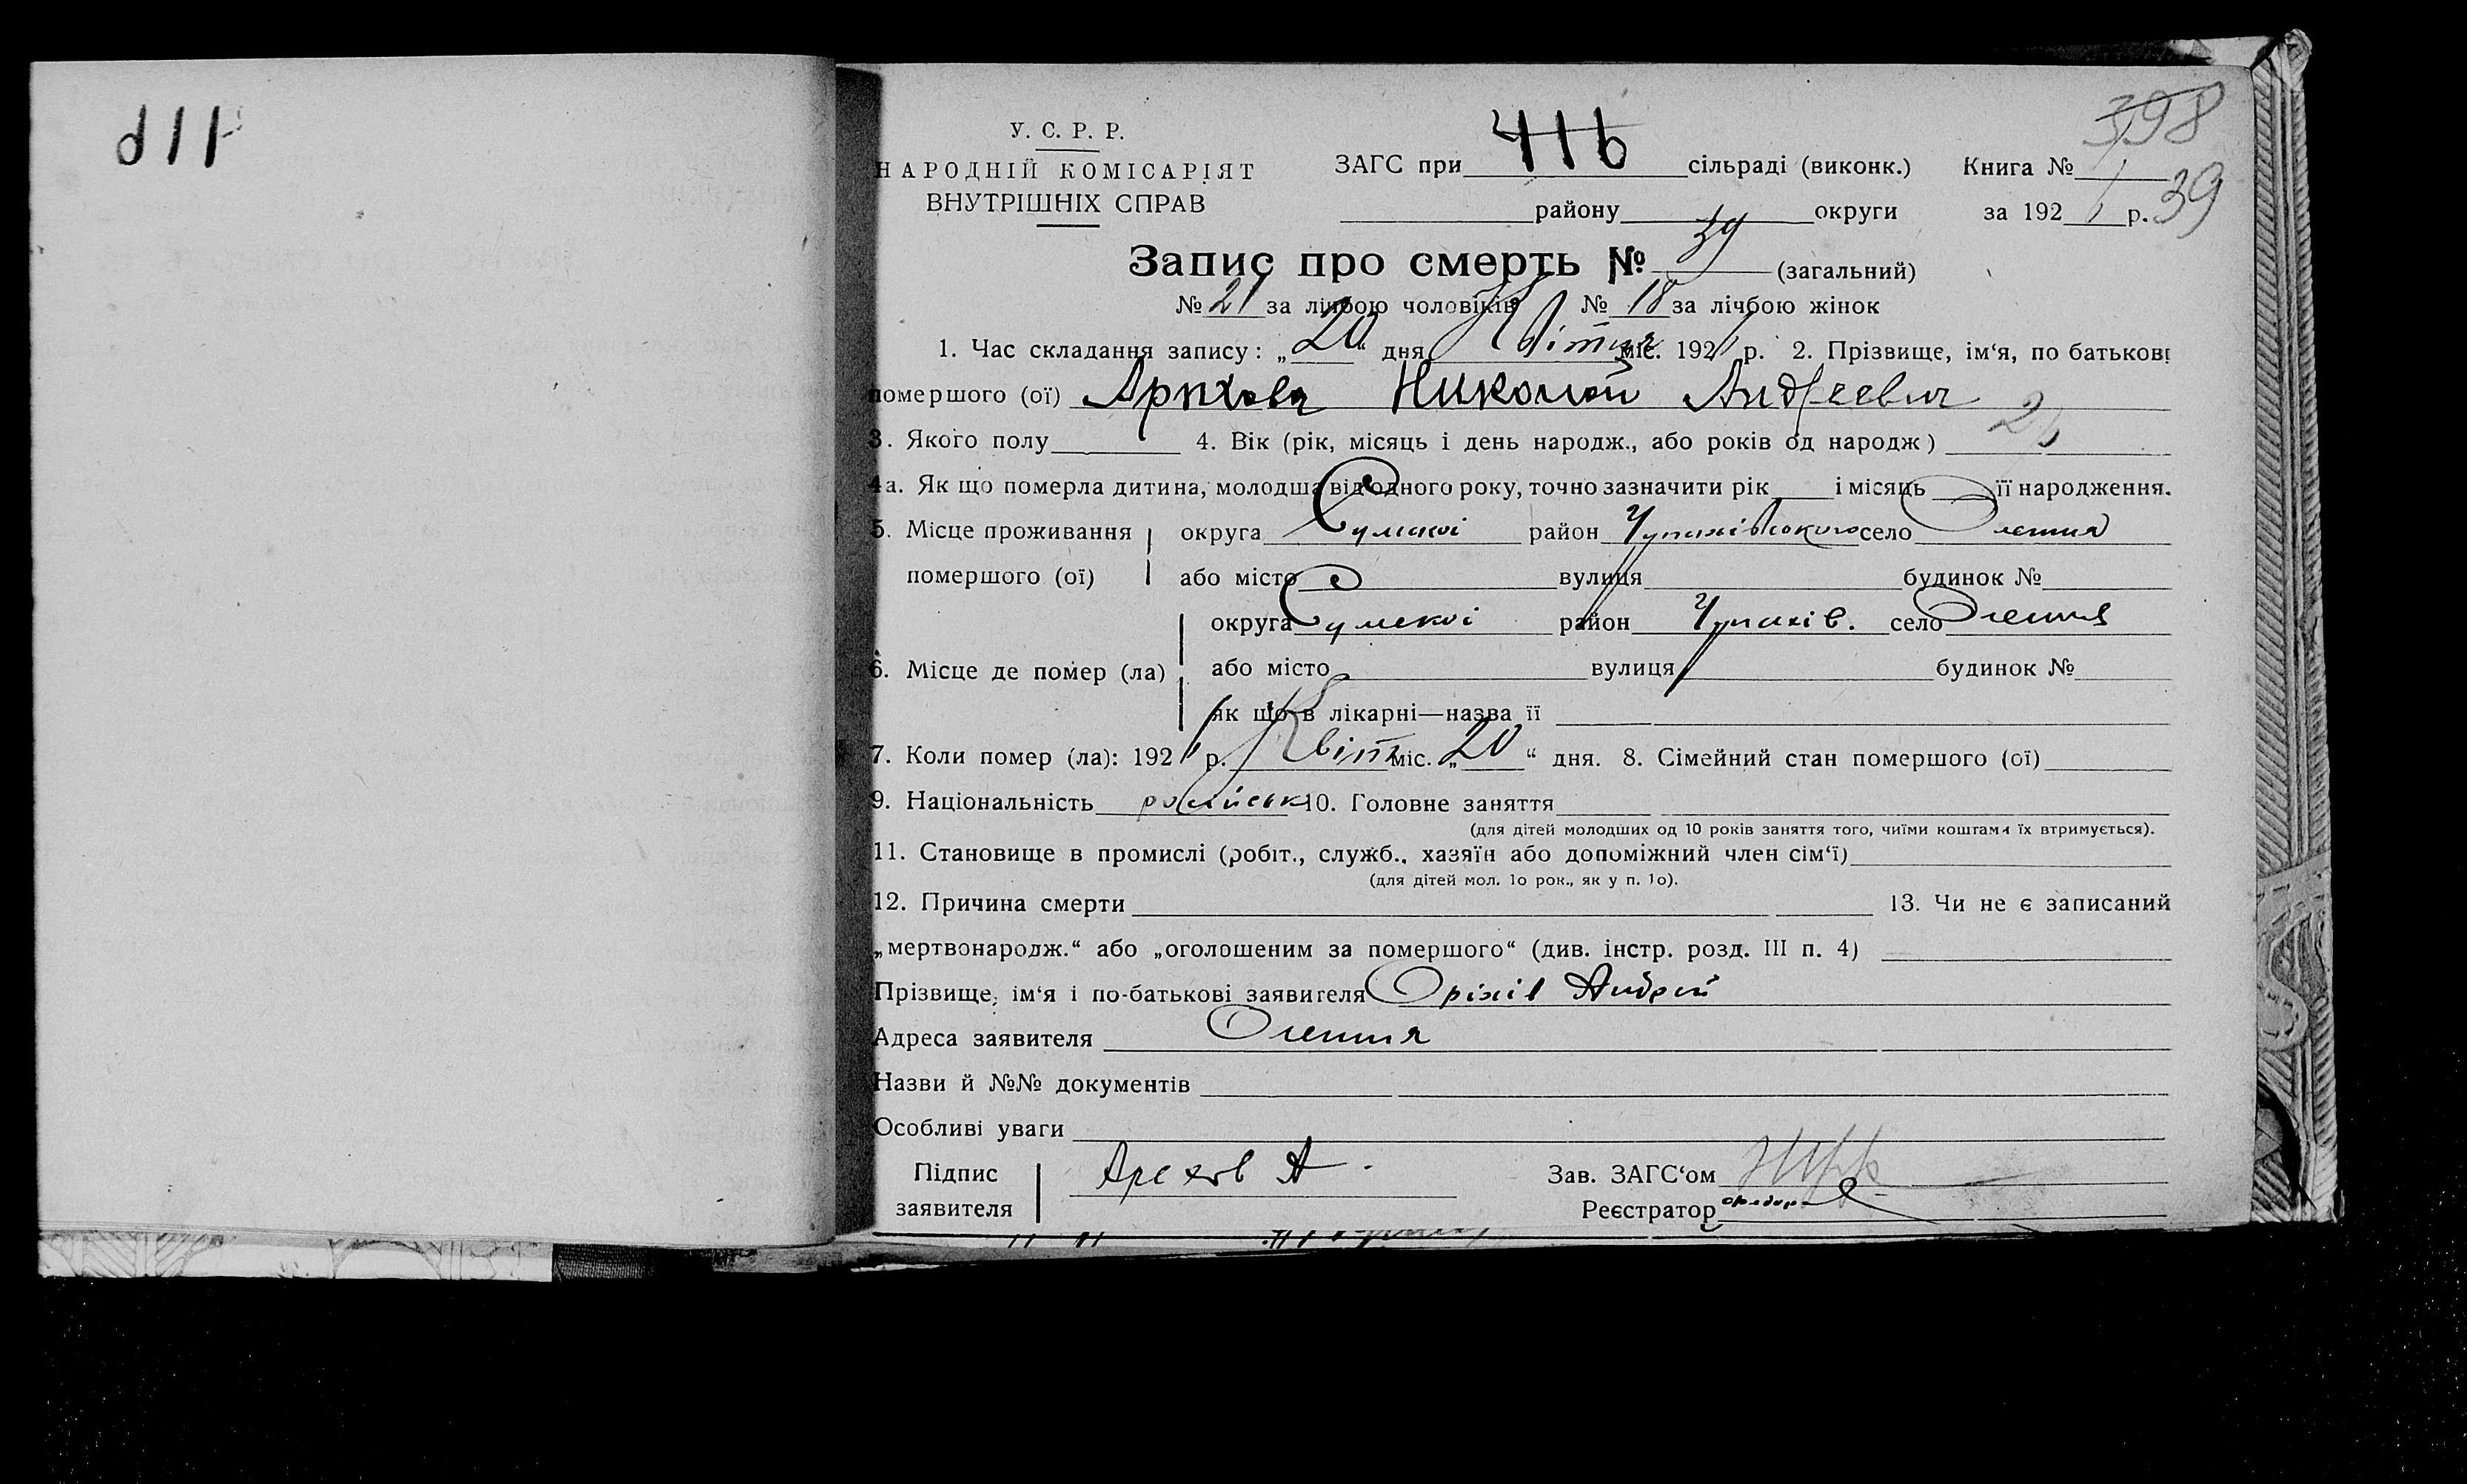 У. С. Р. Р.
НАРОДНІЙ КОМІСАРІЯТ
ВНУТРІШНІХ СПРАВ
398
39
ЗАГС при 416 сільраді (виконк.) Книга № 1
району округи за 1921 р.
Запис про смерть № 39 (загальний)
№ 21 за лічбою чоловіків № 18 за лічбою жінок
1. Час складання запису: „20“ дня Квітня міс. 1921 р. 2. Прізвище, ім‘я, по батькові
помершого (ої) Николай Андреевич
3. Якого полу 4. Вік (рік, місяць і день народж., або років од народж)
4а. Як що померла дитина, молодша від одного року, точно зазначити рік і місяць її народження.
5. Місце проживання округа Сумскої район Чупахівського село Олешня
помершого (ої) або місто вулиця будинок №
округа Сумскої район Чупахів. село Олешня
6. Місце де помер (ла) або місто вулиця будинок №
як що в лікарні—назва її
7. Коли помер (ла): 1921 р. Квітн міс. „20“ дня. 8. Сімейний стан помершого (ої)
9. Національність російськ 10. Головне заняття
(для дітей молодших од 10 років заняття того, чиїми коштами їх втримується).
11. Становище в промислі (робіт., служб., хазяїн або допоміжний член сім‘ї)
(для дітей мол. 1о рок., як у п. 1о).
12. Причина смерти 13. Чи не є записаний
„мертвонародж.“ або „оголошеним за помершого“ (див. інстр. розд. III п. 4)
Прізвище, ім‘я і по-батькові заявителя Оріхів Андрей
Адреса заявителя Олешня
Назви й №№ документів
Особливі уваги
Підпис заявителя А
Зав. ЗАГС‘ом
Реєстратор